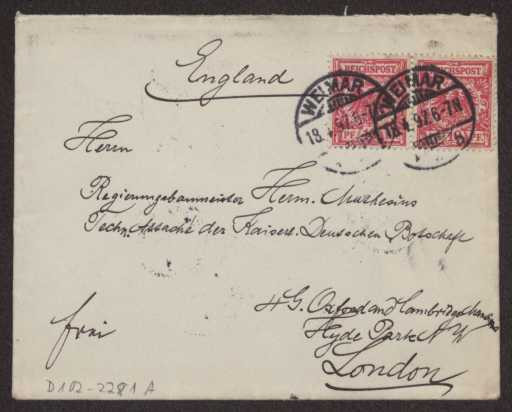 England
REICHSPOST REICHSPOST
WEIMAR WEIMAR
18. 97. 6-7N
Herrn
Regierungsbaumeister Herm. Muthesius
Techn. Attaché der Kaiserl. Deutschen Botschaft
4 G. Oxford and Cambridge Mansions
Hyde Park N W
frei
London
D102-2281 A